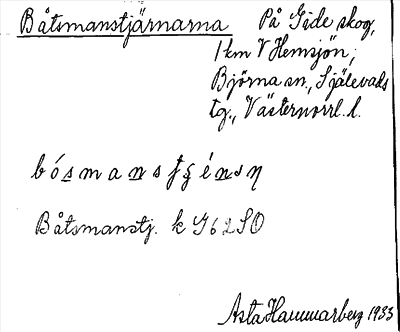 Båtsmanstjärnarna På Gide skog,
1 km V Hemsjön,
Björna sn., Själevads
tg., Västernorrl. l.
bósmansťśénsṇ
Båtsmanstj. k G62SO
Asta Hammarberg 1933